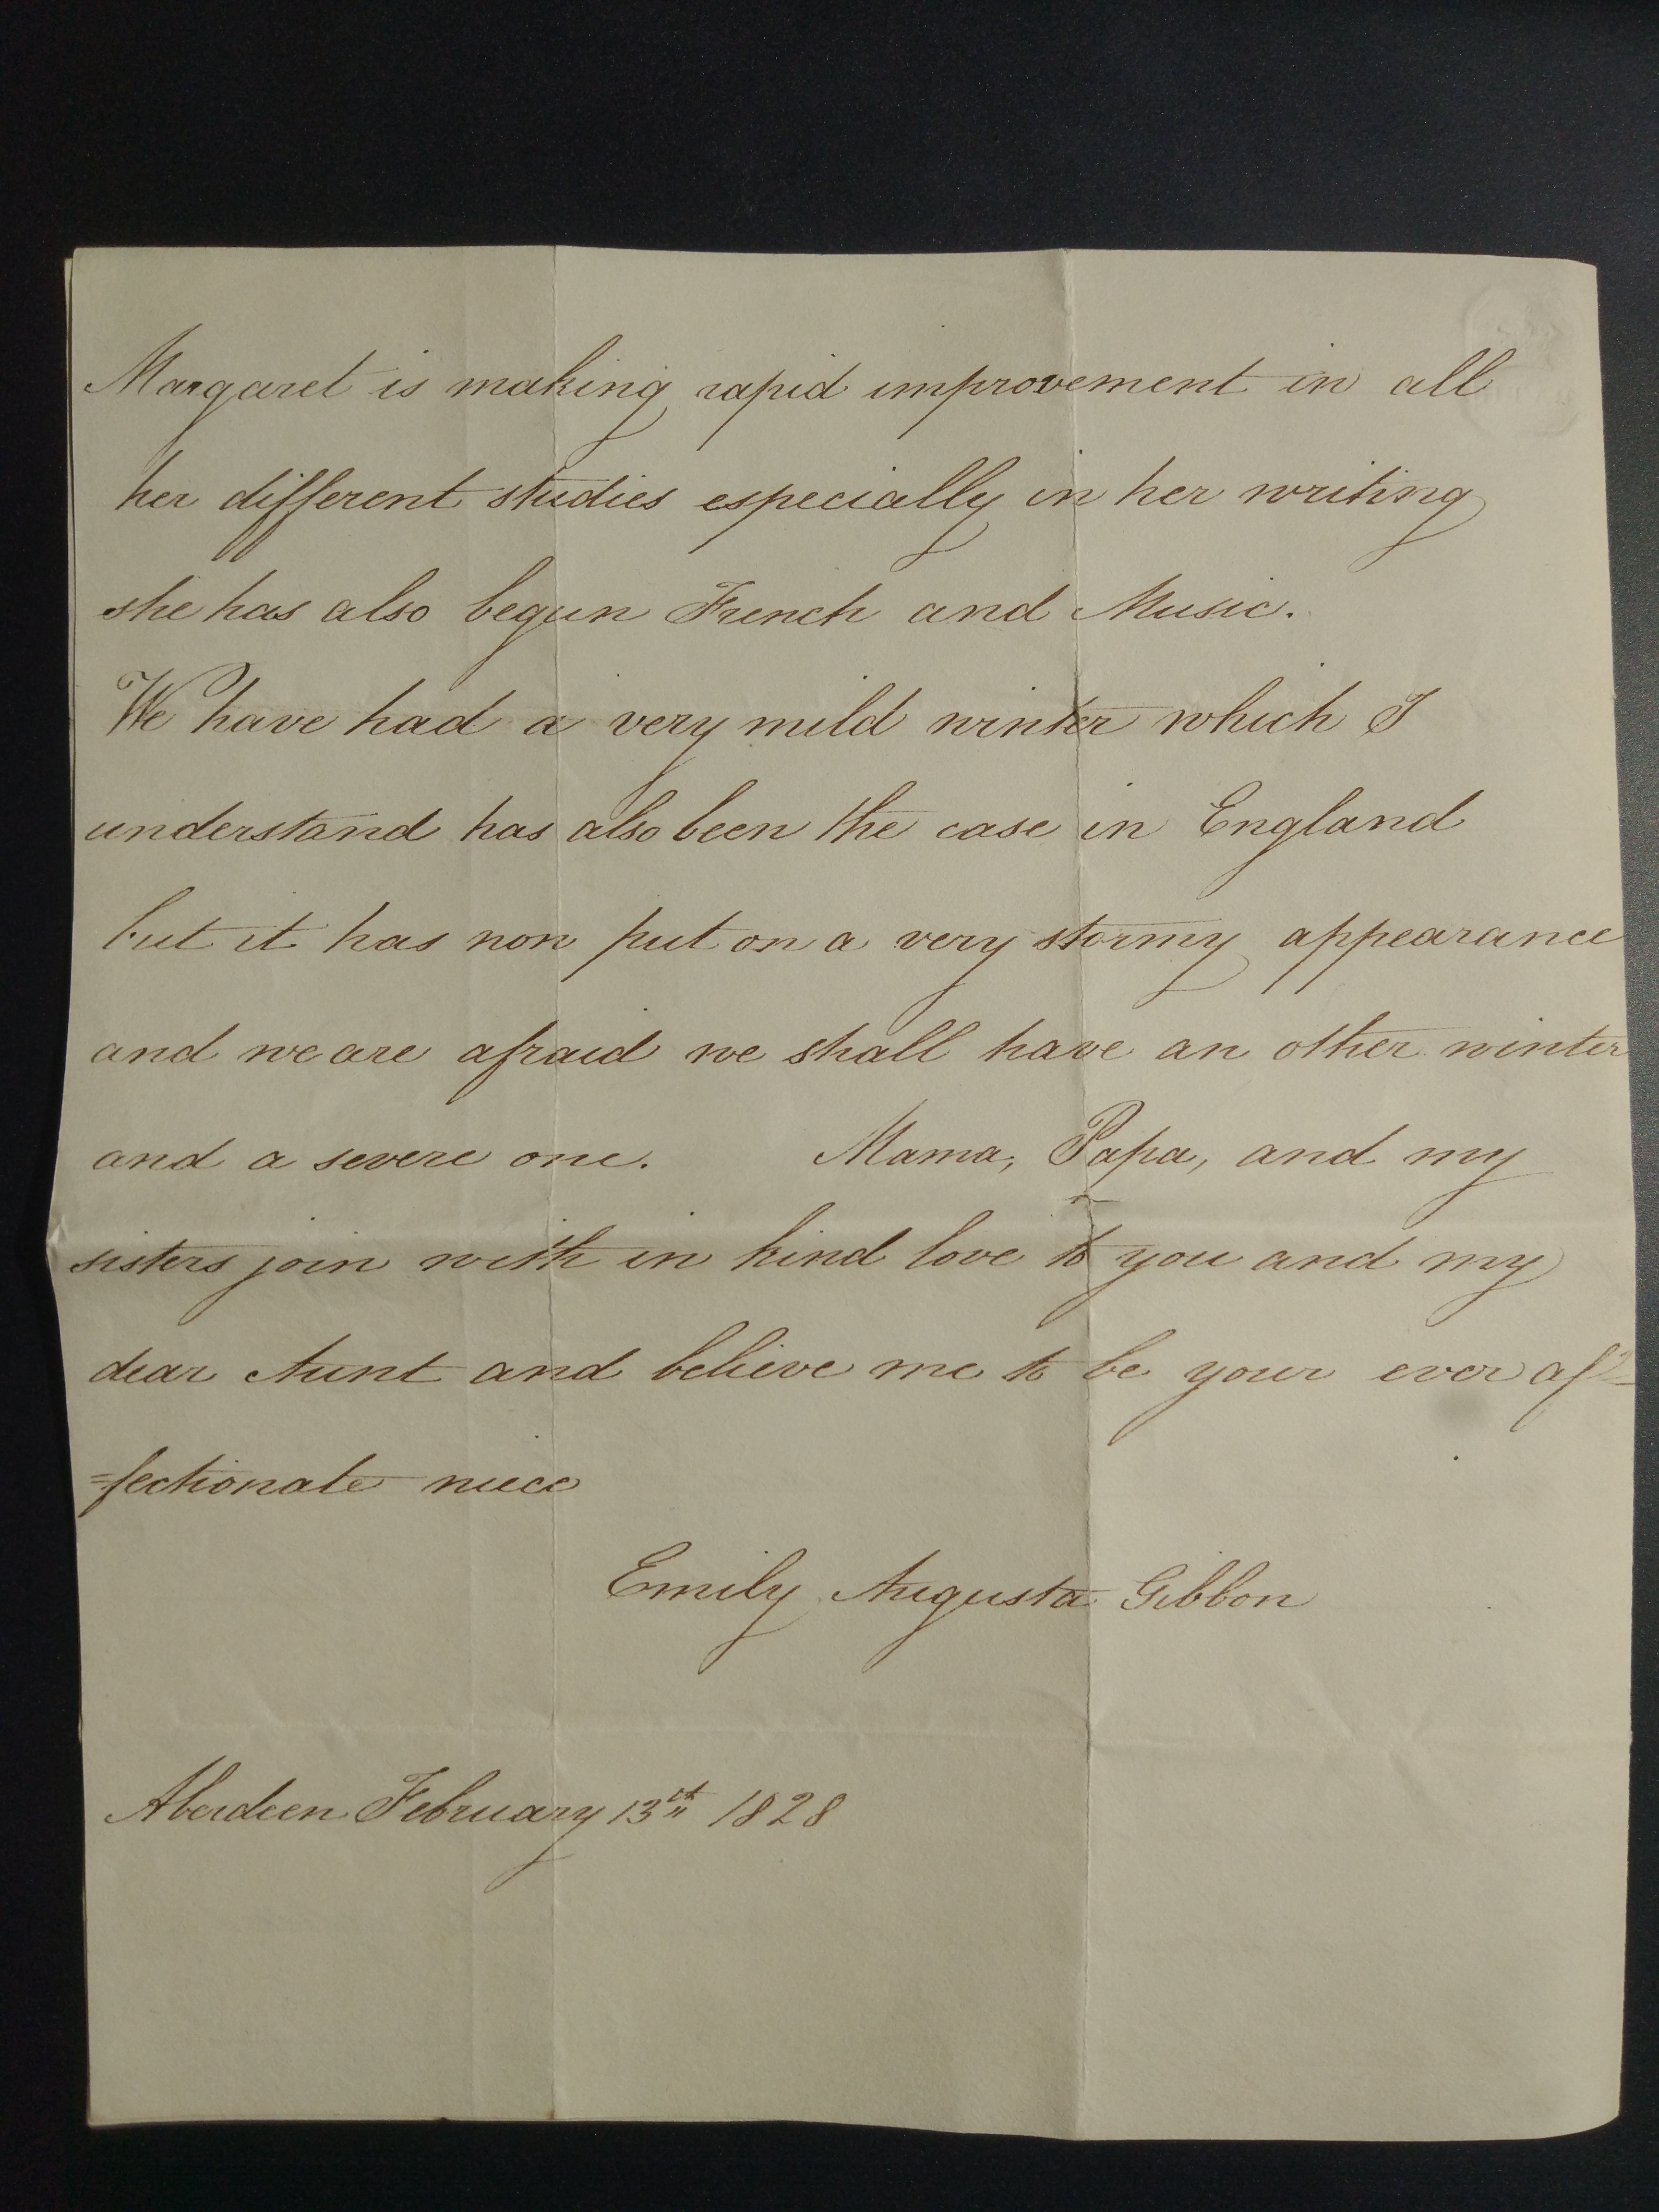 Margaret is making rapid improvement in all
her different studies especially in her writing
she has also begun French and Music.
We have had a very mild winter which I
understand has also been the case in England
but it has now put on a very stormy appearance
and we are afraid we shall have an other winter
and a severe one. Mama, Papa, and my
sisters join with in kind love to you and my
dear Aunt and believe me to be your ever af-
=fectionate niece
Emily Augusta Gibbon
Aberdeen February 13th 1828